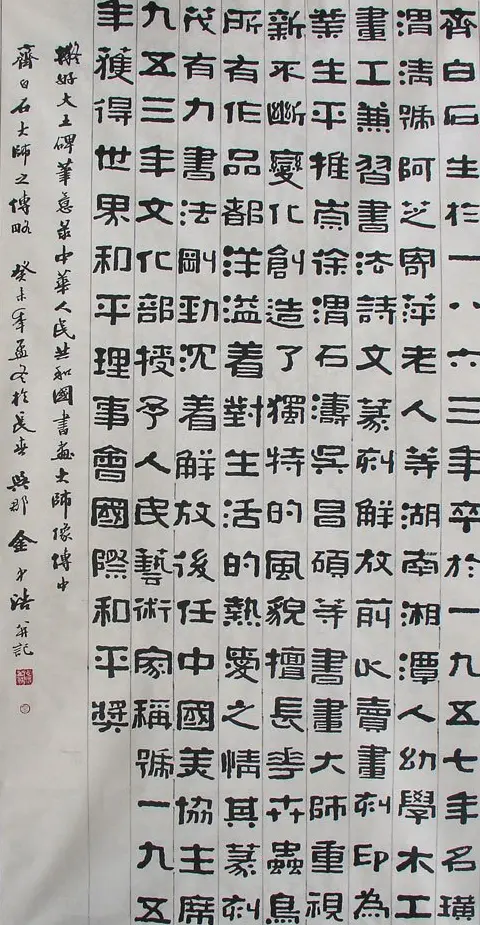 齊白石生於一八六三年卒於一九五七年名璜
渭清號阿芝寄萍老人等湖南湘潭人幼學木工
畫工兼習書法詩文篆刻解放前以賣畫刻印為
業生平推崇徐渭石濤吳昌碩等書畫大師重視
新不斷變化創造了獨特的風貌擅長花卉蟲鳥
所有作品都洋溢着對生活的熱愛之情其篆刻
茂有力書法剛勁沉着解放後任中國美協主席
九五三年文化部授予人民藝術家稱號一九五
年獲得世界和平理事會國際和平獎
擬好大王碑筆意录中華人民共和國書畫大師像傳中
齊白石大師之傳略 癸未年孟冬於長春 金浩并記